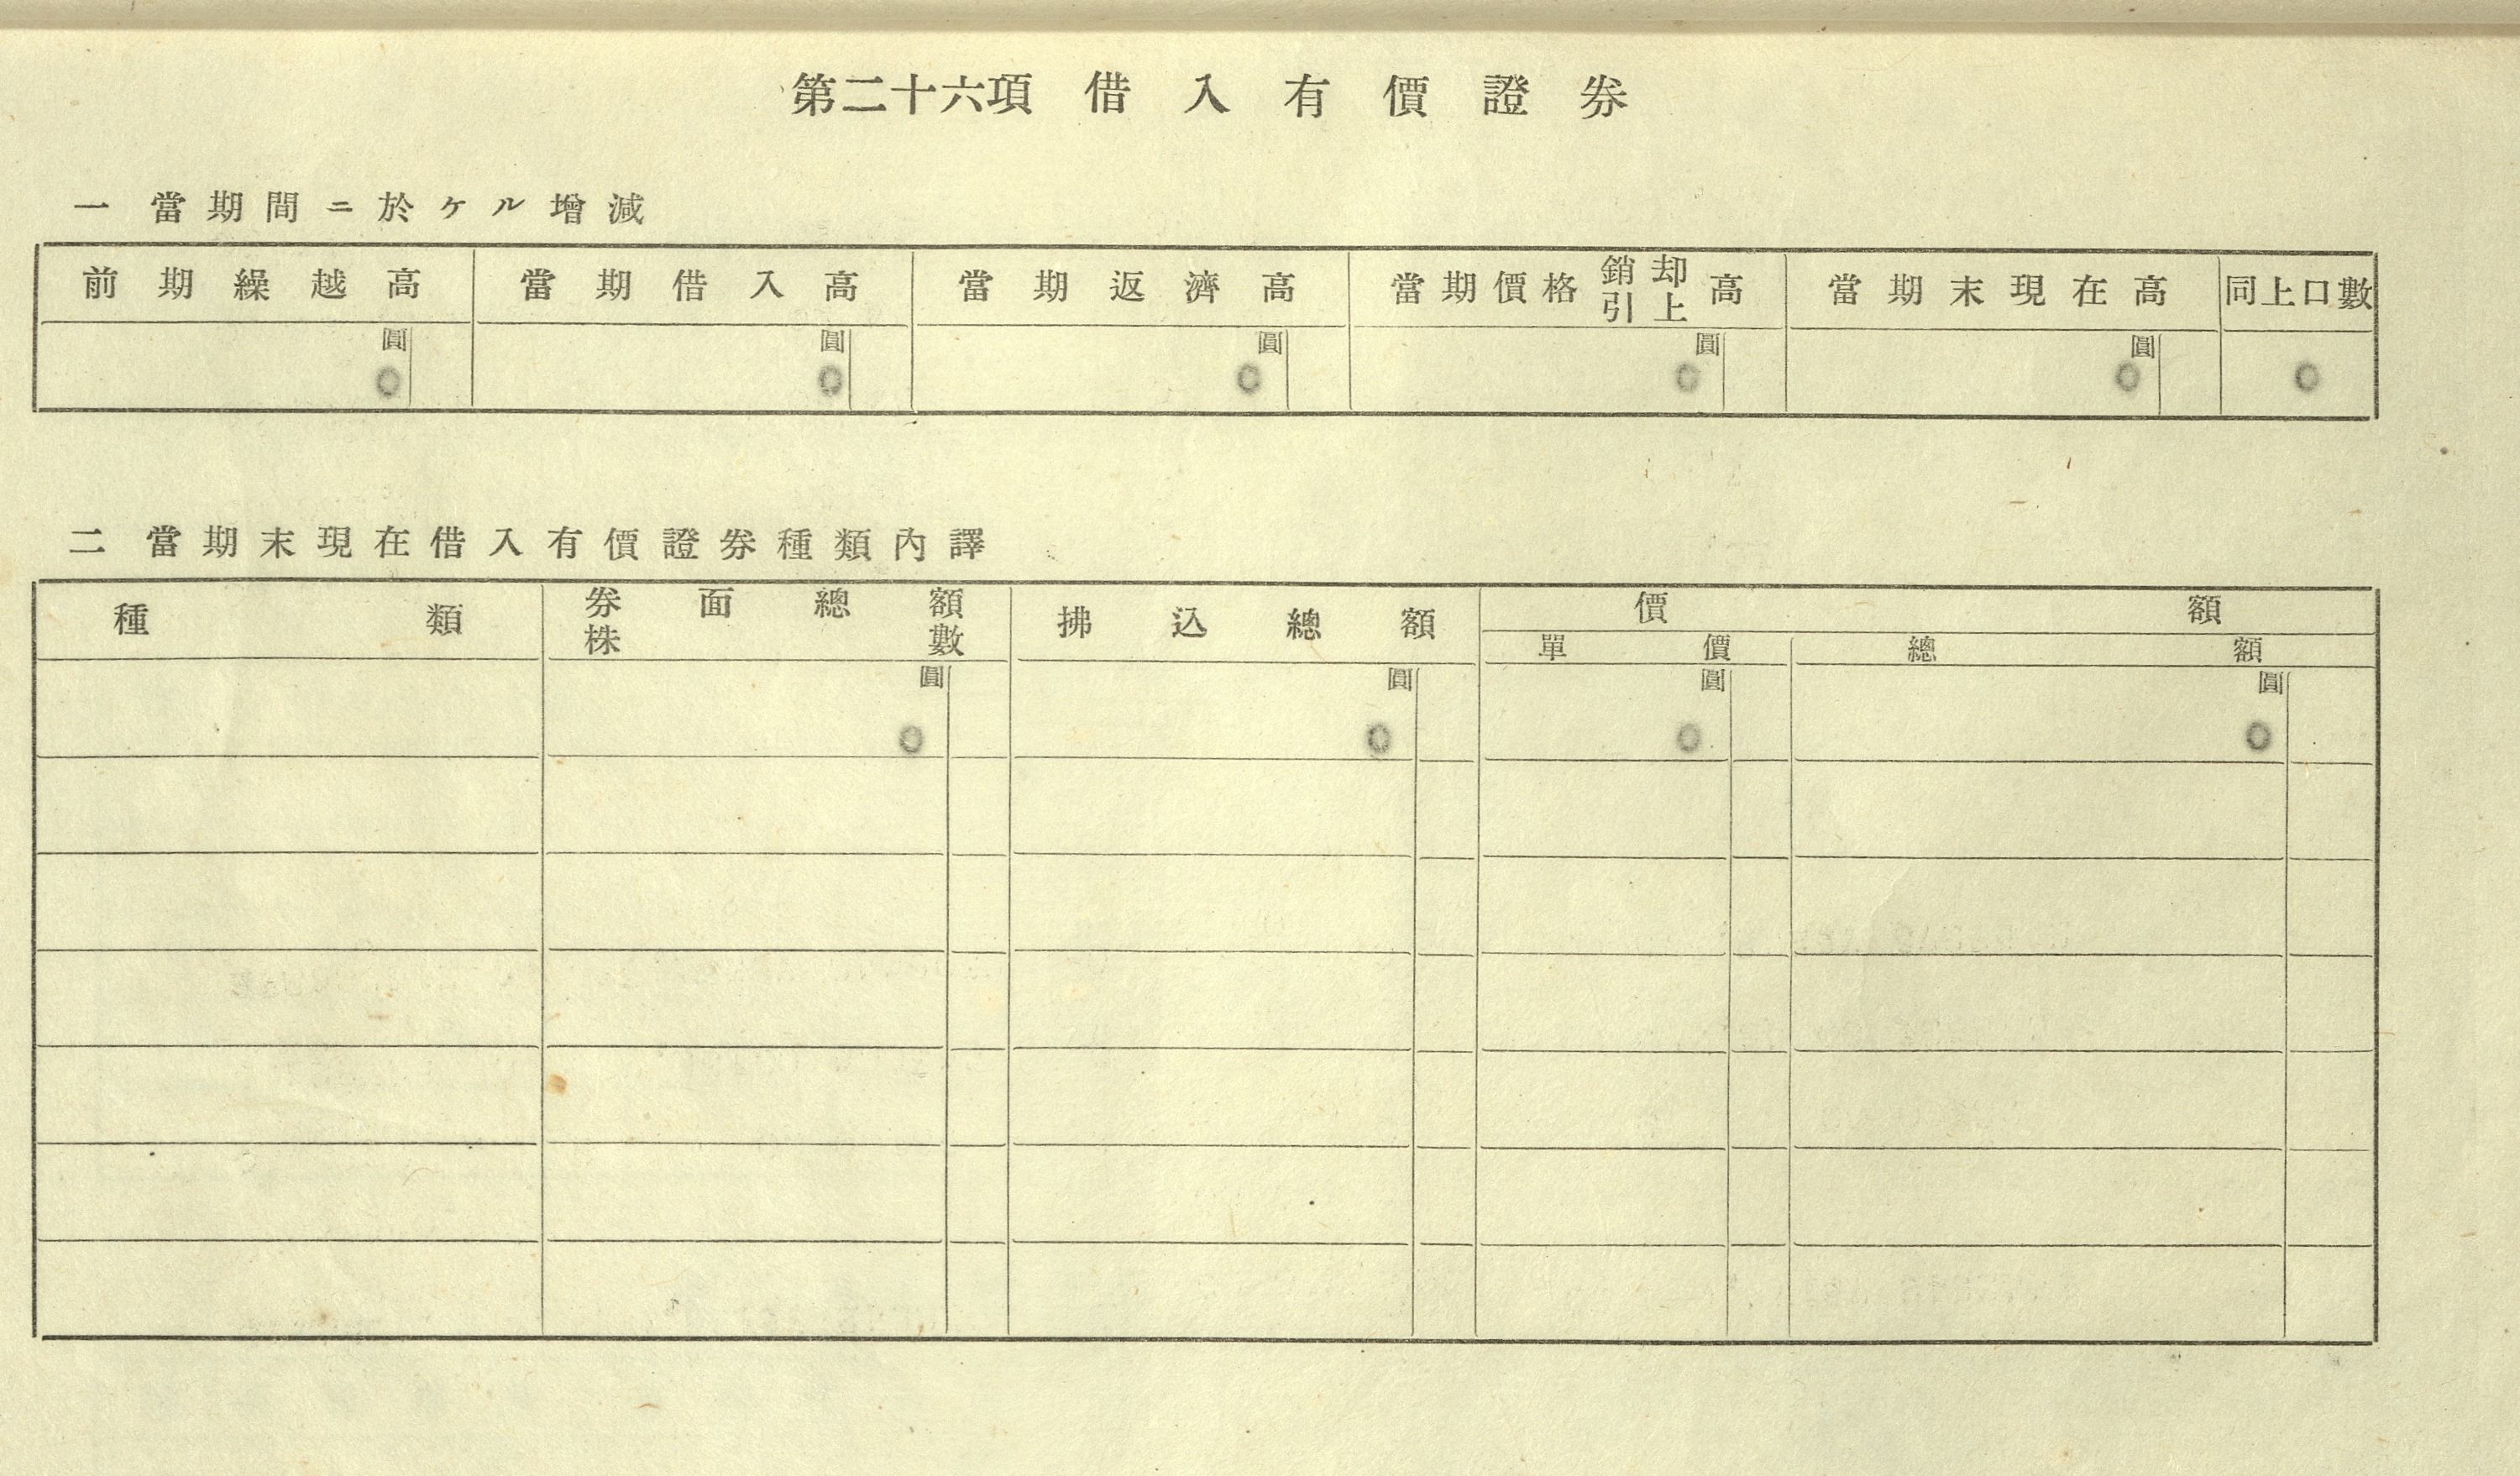 第二十六項 借入有價證券
一 當期間ニ於ケル增減
前期繰越高 當期借入高 當期返濟高 當期價格銷却引上高 當期末現在高 同上口數
圓 圓 圓 圓 圓
0 0 0 0 0 0
二 當期末現在借入有價證券種類內譯
種類 券面總額 拂込總額 價額
株數 單價 總額
圓 圓 圓 圓
0 0 0 0